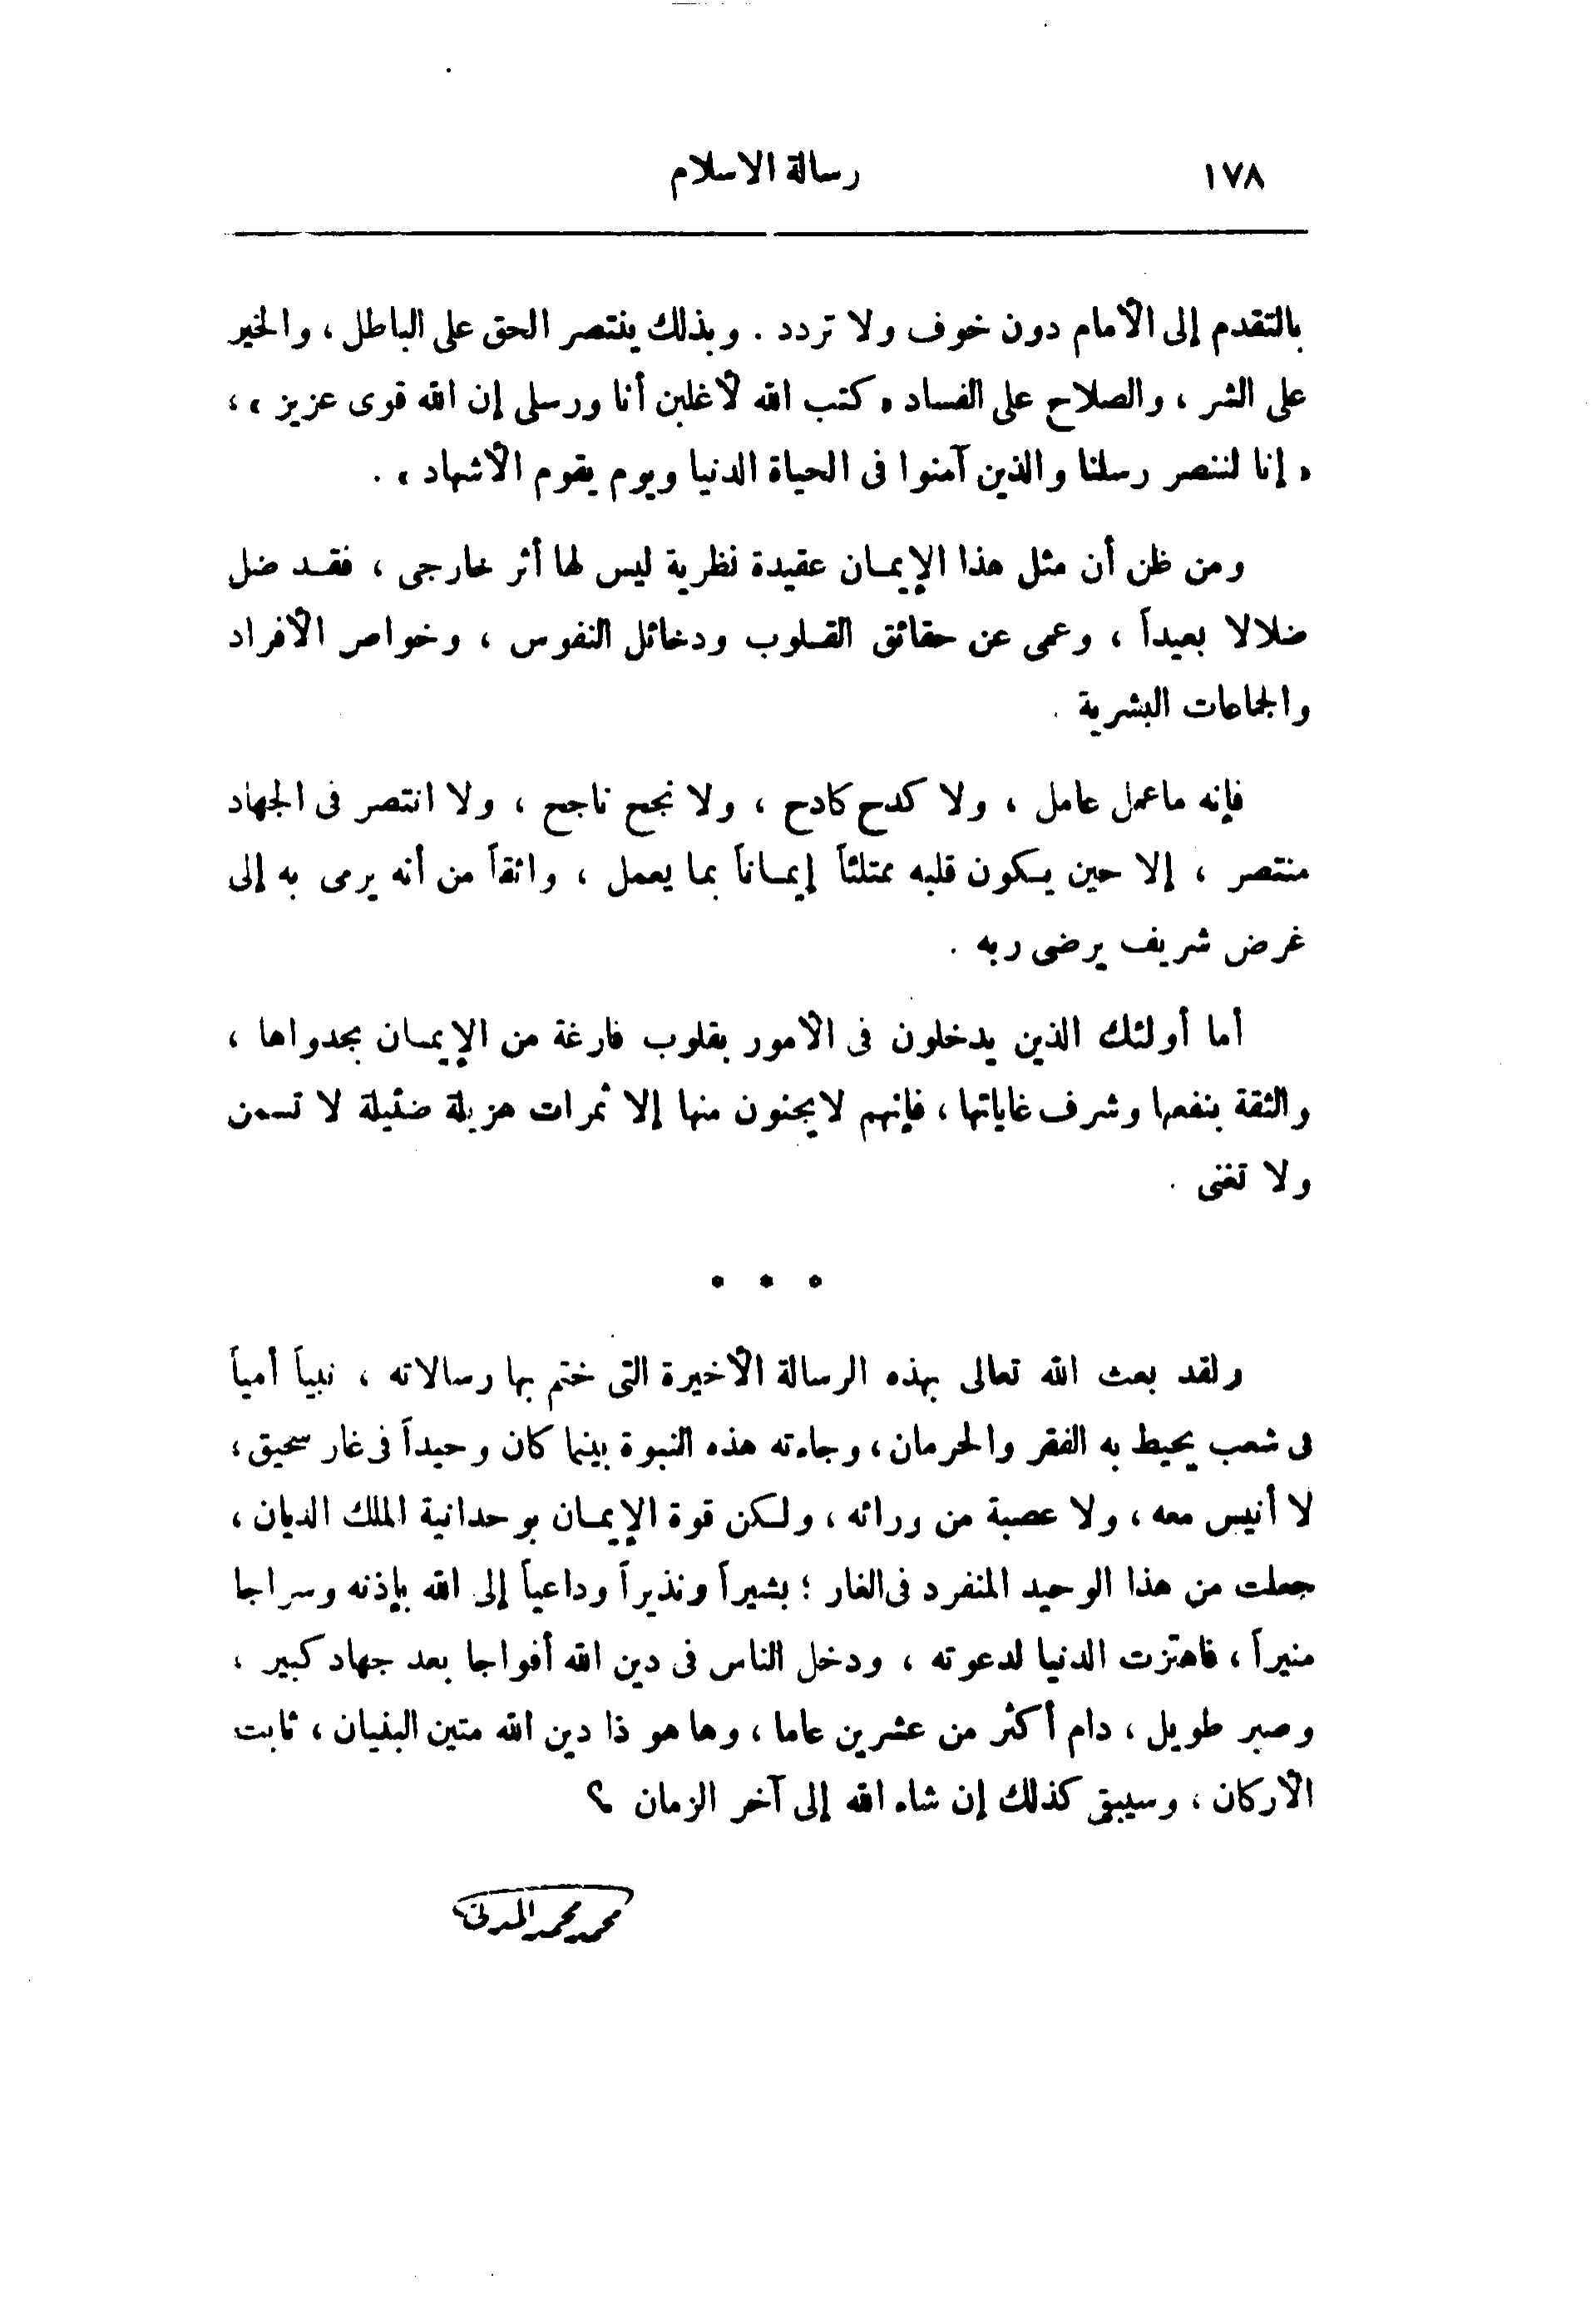 ١٧٨
رسالة الاسلام
بالتقدم إلى الأمام دون خوف ولا تردد . وبذلك ينتصر الحق على الباطل ، والخير
على الشر ، والصلاح على الفساد « كتب الله لأغلبن أنا ورسلى إن الله قوى عزيز » ،
« إنا لننصر رسلنا والذين آمنوا فى الحياة الدنيا ويوم يقوم الأشهاد » .
ومن ظن أن مثل هذا الإيمـان عقيدة نظرية ليس لها أثر خارجى ، فقـد ضل
ضلالا بعيداً ، وعمى عن حقائق القـلوب ودخائل النفوس ، وخواص الأفراد
والجماعات البشرية .
فإنه ماعمل عامل ، ولا كدح كادح ، ولا نجح ناجح ، ولا انتصر فى الجهاد
منتصر ، إلا حين يـكون قلبه ممتلئاً إيمـاناً بمـا يعمل ، واثقاً من أنه يرمى به إلى
غرض شريف يرضى ربه .
أما أولئك الذين يدخلون فى الأمور بقلوب فارغة من الإيمـان بجدواها ،
والثقة بنفعها وشرف غاياتها ، فإنهم لايجنون منها إلا ثمرات هزيلة ضئيلة لا تسمن
ولا تغنى .
• • •
ولقد بعث الله تعالى بهذه الرسالة الأخيرة التى ختم بها رسالاته ، نبياً أمياً
فى شعب يحيط به الفقر والحرمان ، وجاءته هذه النبوة بينما كان وحيداً فى غار سحيق ،
لا أنيس معه ، ولا عصبة من ورائه ، ولـكن قوة الإيمـان بوحدانية الملك الديان ،
جعلت من هذا الوحيد المنفرد فى الغار ؛ بشيراً ونذيراً وداعياً إلى الله بإذنه وسراجا
منيراً ، فاهتزت الدنيا لدعوته ، ودخل الناس فى دين الله أفواجا بعد جهاد كبير ،
وصبر طويل ، دام أكثر من عشرين عاما ، وها هو ذا دين الله متين البنيان ، ثابت
الأركان ، وسيبقى كذلك إن شاء الله إلى آخر الزمان ؟
محمد محمد المدنى